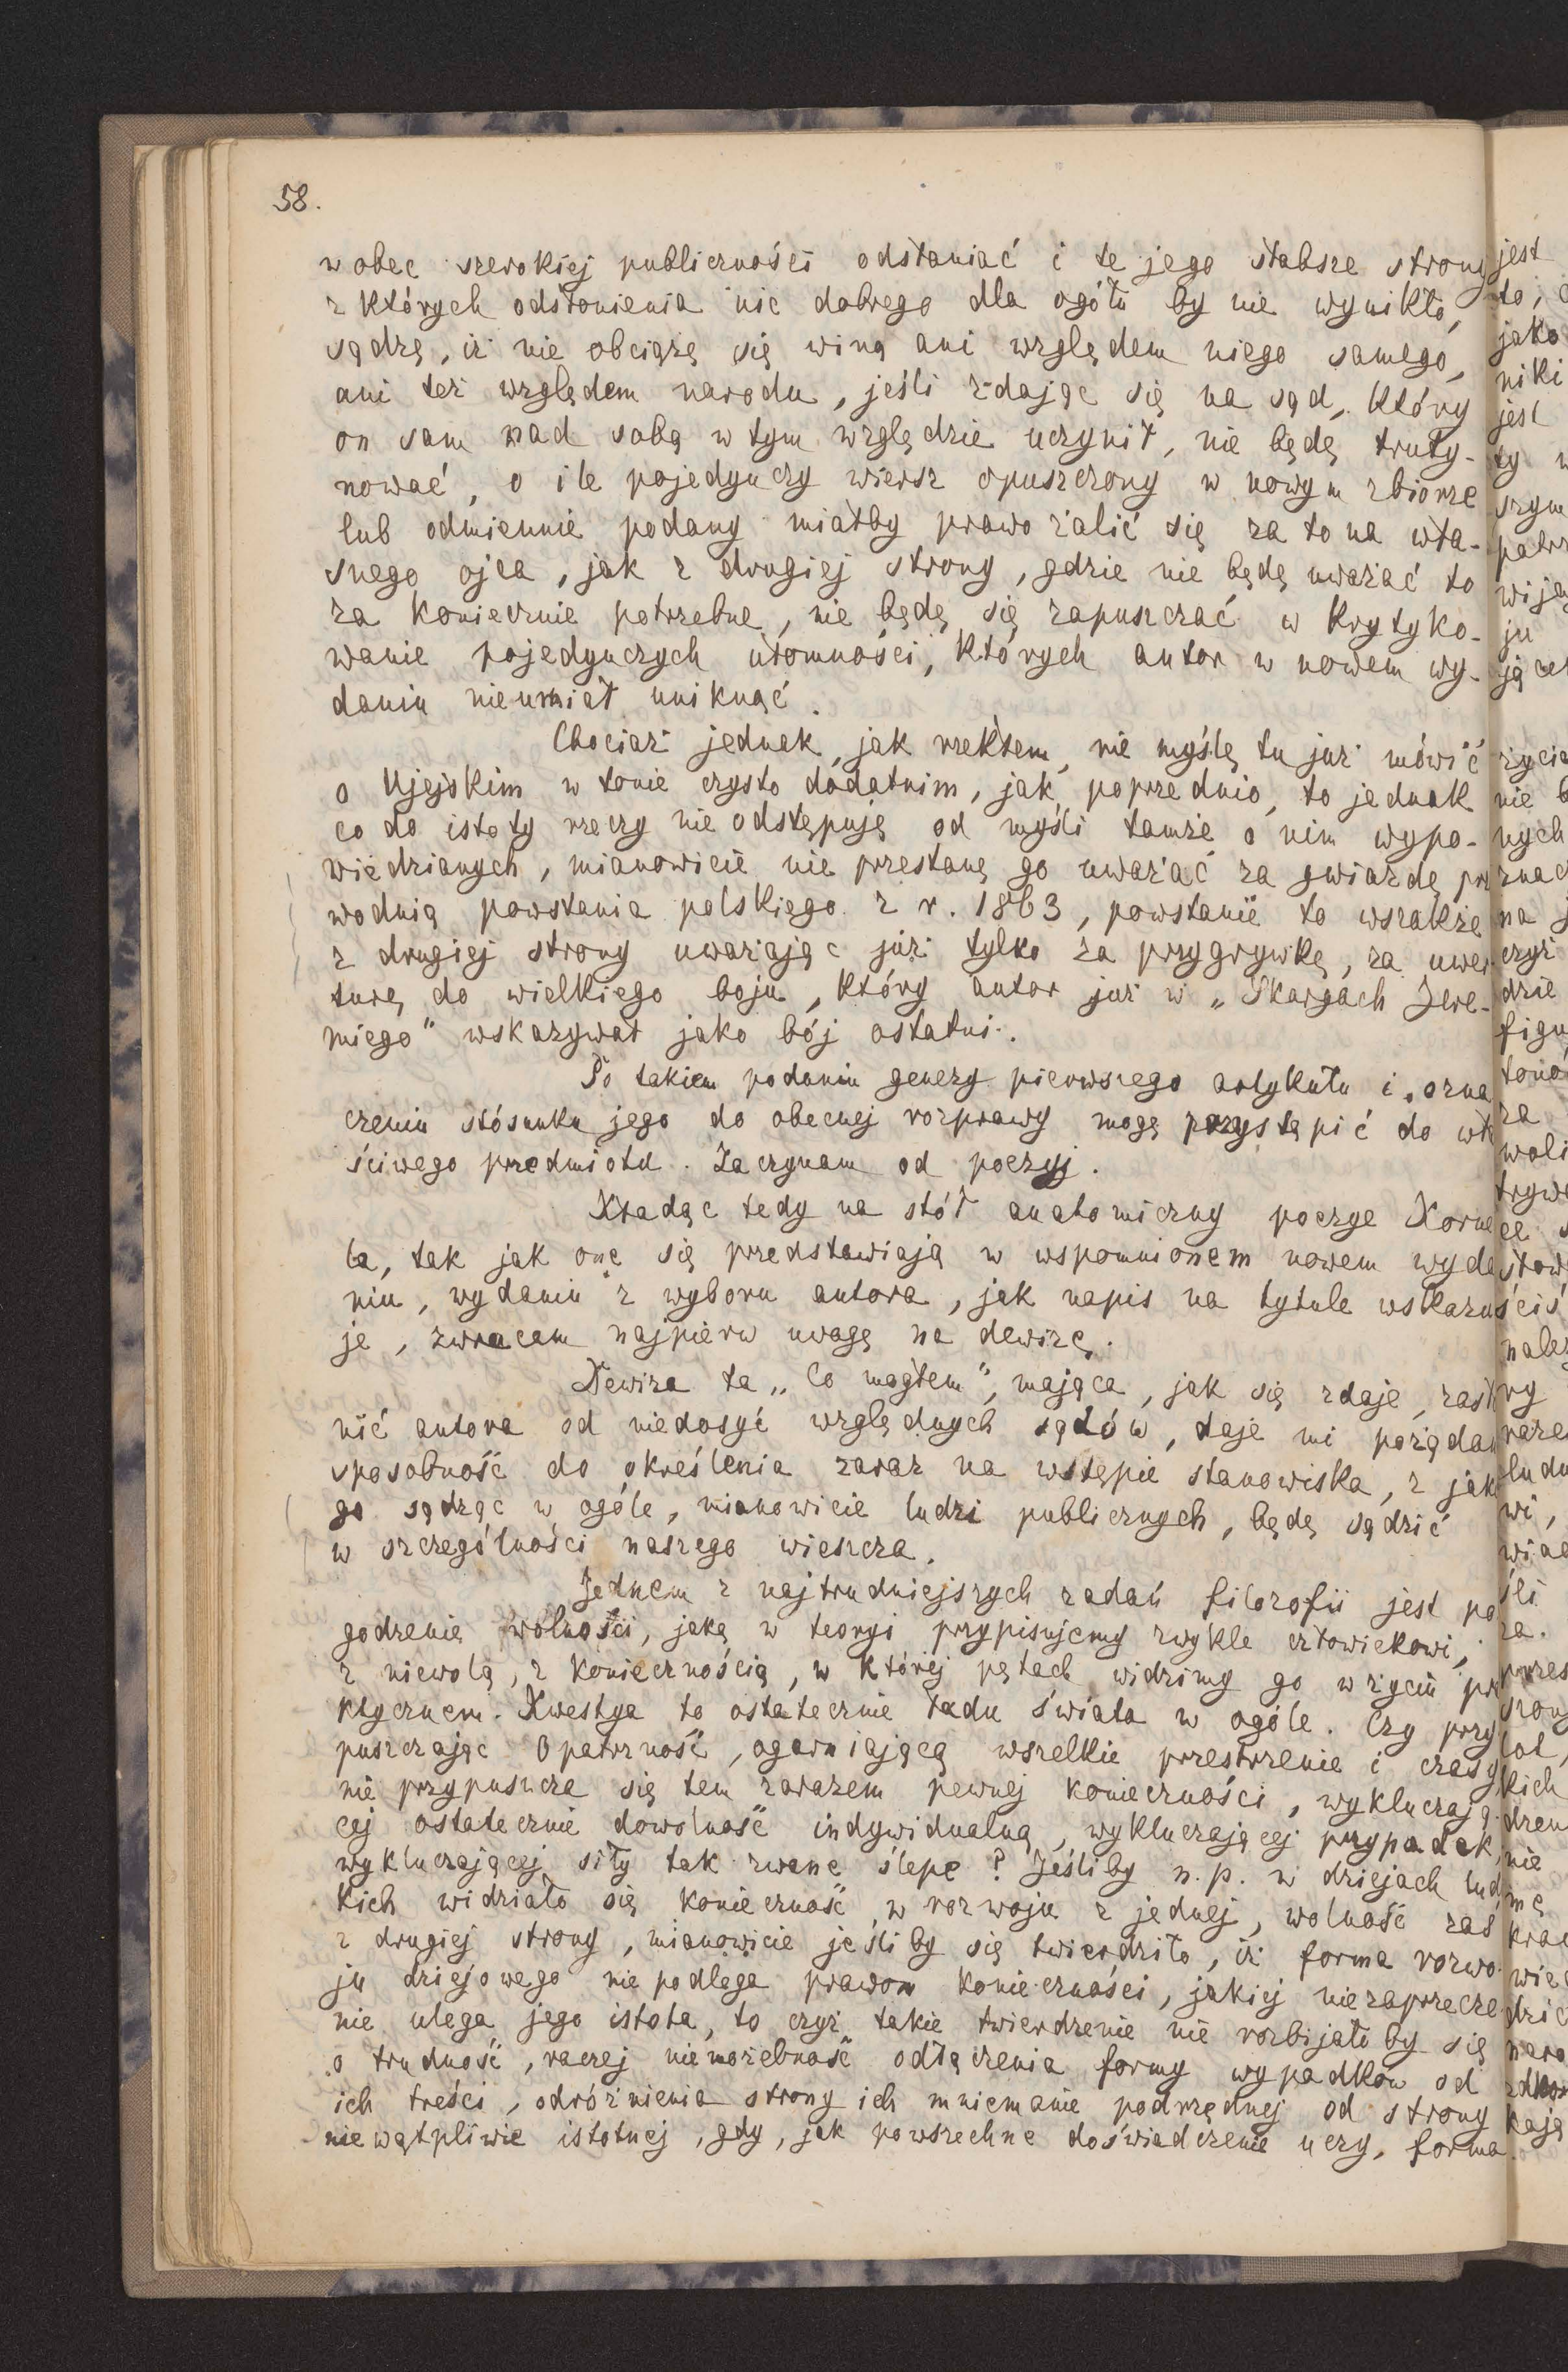 58.
wobec szerokiej publiczności odsłaniać i te jego słabsze strony
z których odsłonienia nic dobrego dla ogółu by nie wynikło,
sądzę, iż nie obciążę się winą ani względem niego samego,
ani też względem narodu, jeśli zdając się na sąd, który
on sam nad sobą w tym względzie uczynił, nie będę truty-
nować, o ile pojedynczy wiersz opuszczony w nowym zbiorze
lub odmiennie podany miałby prawo żalić się za to na wła-
snego ojca, jak z drugiej strony, gdzie nie będę uważać to
za koniecznie potrzebne, nie będę się zapuszczać w krytyko-
wanie pojedynczych ułomności, których autor w nowem wy-
daniu nie umiał uniknąć.
Chociaż jednak, jak rzekłem, nie myślę tu już mówić
o Ujejskim w tonie czysto dodatnim, jak poprzednio, to jednak
co do istoty rzeczy nie odstępuję od myśli tamże o nim wypo-
wiedzianych, mianowicie nie przestanę go uważać za gwiazdę prze
wodnią powstania polskiego z r. 1863, powstanie to wszakże
z drugiej strony uważając już tylko za przygrywkę, za uwer
turę do wielkiego boju, który autor już w „Skargach Jere-
miego" wskazywał jako bój ostatni.
Po takiem podaniu genezy pierwszego artykułu i ozna
czeniu stósunku jego do obecnej rozprawy mogę przystąpić do wła
ściwego przedmiotu. Zaczynam od poezyj.
Kładąc tedy na stół anatomiczny poezye Korne
la, tak jak one się przedstawiają w wspomnionem nowem wyda
niu, wydaniu z wyboru autora, jak napis na tytule wskazu
je, zwracam najpierw uwagę na dewizę.
Dewiza ta „Co mogłem", mająca, jak się zdaje, zasło
nić autora od niedosyć względnych sądów, daje mi pożądan
sposobność do określenia zaraz na wstępie stanowiska, z jakie
go sądząc w ogóle, mianowicie ludzi publicznych, będę sądzić
w szczególności naszego wieszcza.
Jednem z najtrudniejszych zadań filozofii jest po
godzenie wolności, jaką w teoryi przypisujemy zwykle człowiekowi,
z niewolą, z koniecznością, w której pętach widzimy go w życiu pra
ktycznem. Kwestya to ostatecznie ładu świata w ogóle. Czy przy
puszczając Opatrzność, ogarniającą wszelkie przestrzenie i czasy,
nie przypuszcza się tem zarazem pewnej konieczności, wykluczają-
cej ostatecznie dowolność indywidualną, wykluczającej przypadek,
wykluczającej siły tak zwane ślepe? Jeśliby n.p. w dziejach ludz
kich widziało się konieczność w rozwoju z jednej, wolność zaś
z drugiej strony, mianowicie jeśliby się twierdziło, iż forma rozwo
ju dziejowego nie podlega prawom konieczności, jakiej niezaprzecze
nie ulega jego istota, to czyż takie twierdzenie nie rozbijałoby się
o trudność, raczej niemożebność odłączenia formy wypadków od
ich treści, odróżnienia strony ich mniemanie podrzędnej od strony
niewątpliwie istotnej, gdy, jak powszechne doświadczenie uczy, forma